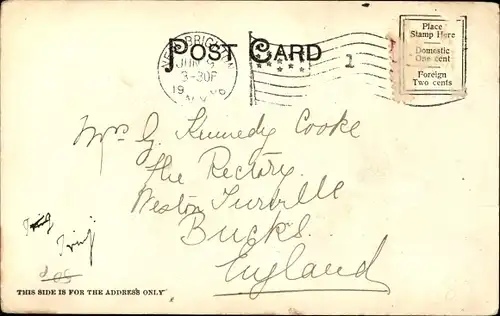 POST CARD
NEW BRIGHTON
JUN
3-30P
19 06
N.Y.
1
Place
Stamp Here
Domestic
One cent
Foreign
Two cents
Mrs G. Kennedy Cooke
The Rectory
Weston Turville
Bucks.
England
Tring
Tring
THIS SIDE IS FOR THE ADDRESS ONLY